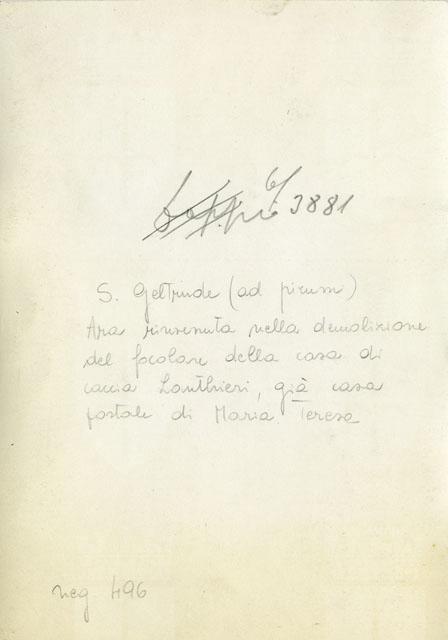 doppio 6/3881
S. Geltrude (ad pirum)
Ara rinvenuta nella demolizione
del focolare della casa di
caccia Lanthieri, già casa
postale di Maria Teresa
neg 496